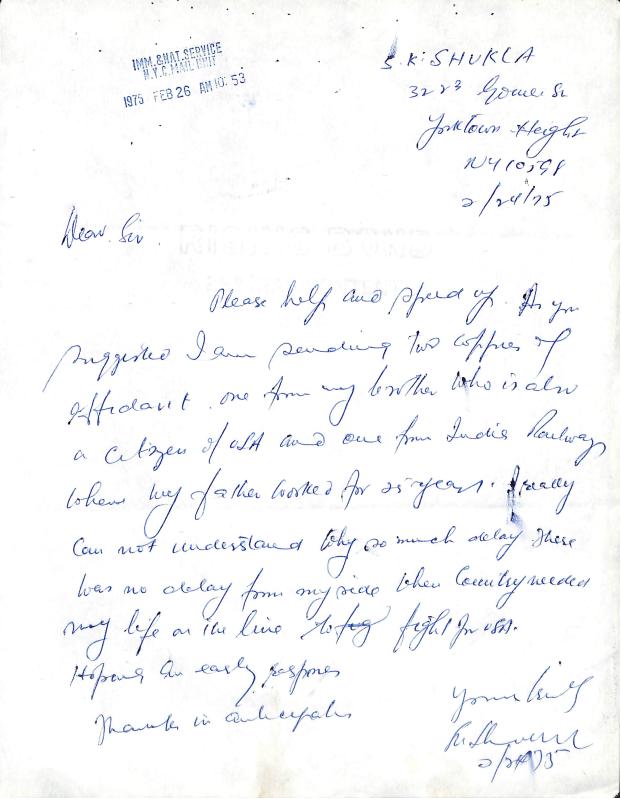 IMM. & NAT. SERVICE
N.Y.C. MAIL UNIT
1975 FEB 26 AM 10:53
S. K. SHUKLA
Yorktown Height
NY 10598
2/24/75
Dear Sir.
Please help and speed up. As you
suggested I am sending two coppies of
affidavit. one from my brother who is also
a citizen of USA and one from India Railways
where my father worked for 25 years. I really
can not understand why so much delay there
was no delay from my side when Country needed
my life on the line to fight for USA.
Hoping an early respones
Thanks in anticipation
2/24/75